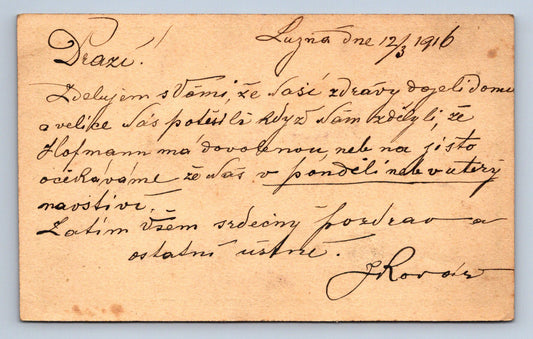 Lužná dne 12/3 1916
Drazí!
Zdelujem s Vámi, že naší zdrávy dojeli domu
a velice nás potěšili když nám zdělyli, že
Hofmann má dovolenou, neb na jisto
očekáváme že nás v pondělí neb v uterý
navstíví.
Zatím všem srdečný pozdrav a
ostatní ústně.